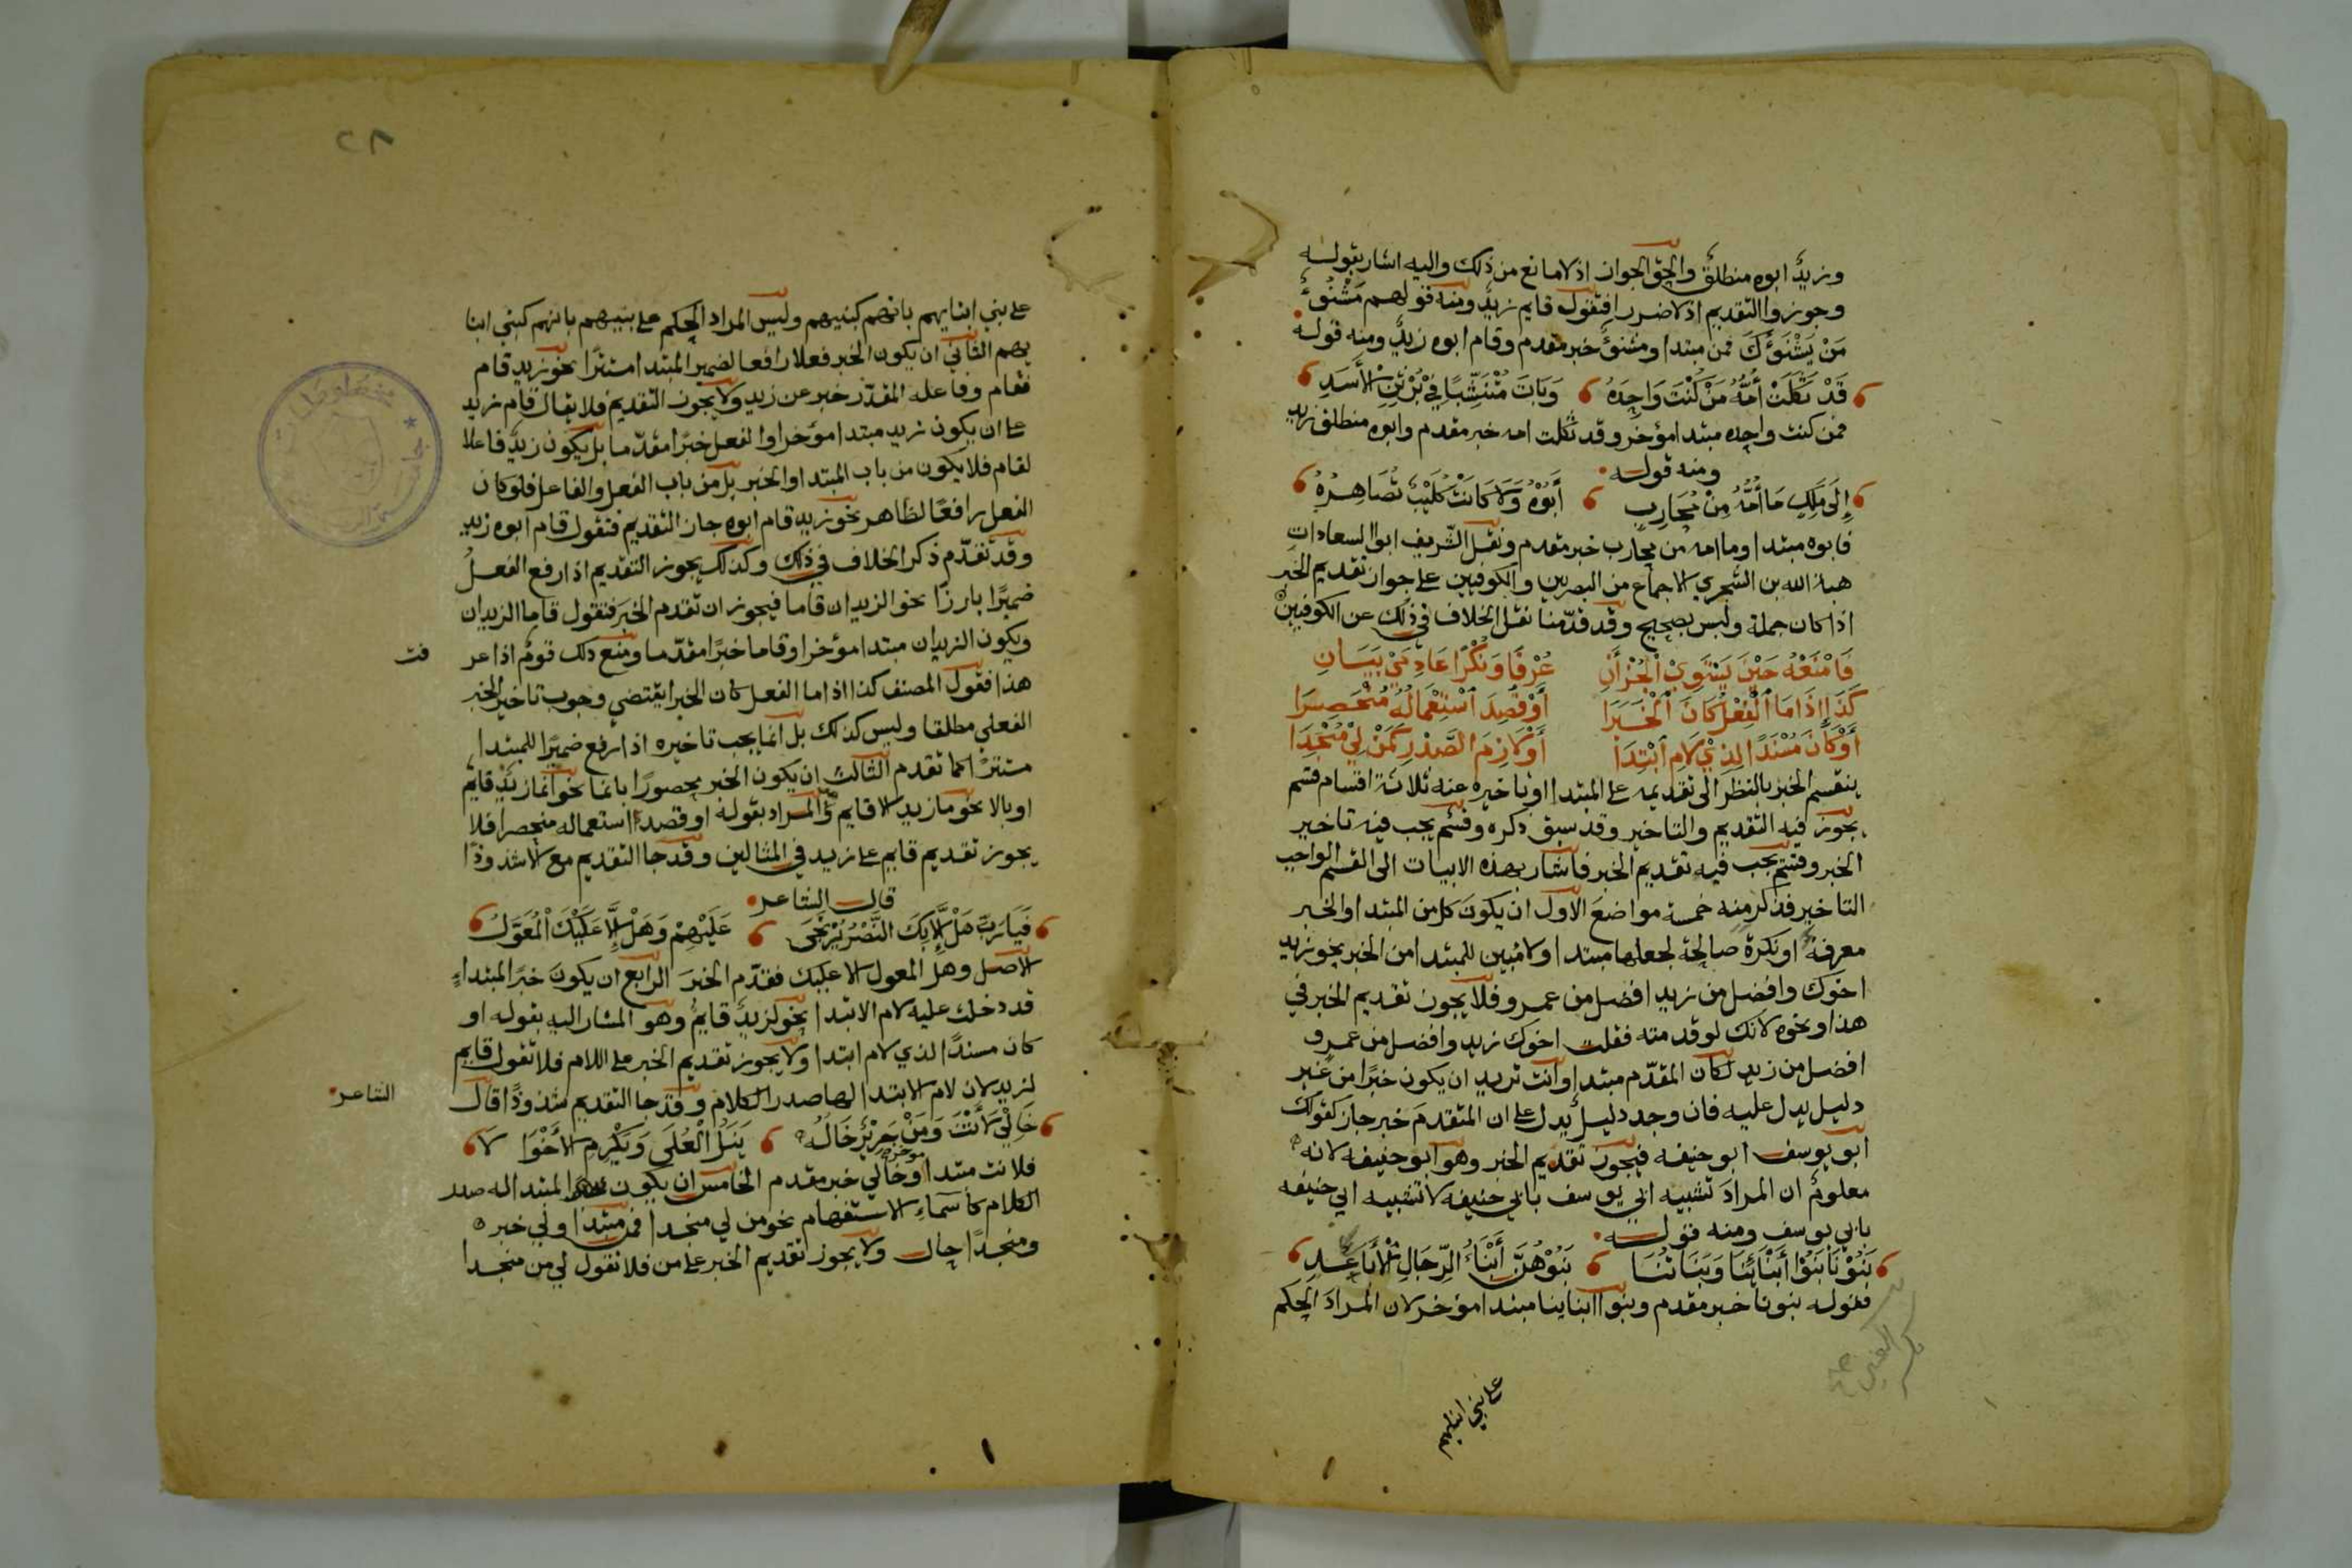 وزيدٌ ابوه منطلقٌ والحق الجواز اذ لا مانع من ذلك واليه اشار بقوله
وجوزوا التقديم اذ لا ضررا فتقول قايم زيدٌ ومنه قولهم مَشْنُوءٌ
مَنْ يَشْنَؤُكَ فمن مبتدا ومشنؤٌ خبر مقدم وقام ابوه زيدٌ ومنه قوله
قَدْ ثَكِلَتْ أُمُّهُ مَنْ كُنْتَ وَاحِدَهُ وَبَاتَ مُنْتَشِبًا فِيْ بُرْثُنِ الأَسَدِ
فمن كنت واحده مبتدا مؤخر وقد ثكلت امه خبر مقدم وابوه منطلق زيد
ومنه قوله
إِلَى مَلِكٍ مَا أُمُّهُ مِنْ مُحَارِبٍ أَبُوْهُ وَلَا كَانَتْ كُلَيْبٌ تُصَاهِرُهُ
فابوه مبتدا وما امه من محارب خبر مقدم ونقل الشريف ابو السعادات
هبة الله بن الشجري الاجماع من البصريين والكوفيين على جواز تقديم الخبر
اذا كان جملة وليس بصحيح وقد قدّمنا نقل الخلاف في ذلك عن الكوفيين
فَامْنَعْهُ حِيْنَ يَسْتَوِيْ الْجُزْآنِ عُرْفًا وَنُكْرًا عَادِمَيْ بَيَانِ
كَذَا إِذَا مَا الْفِعْلُ كَانَ الْخَبَرَا أَوْ قُصِدَ اسْتِعْمَالُهُ مُنْحَصِرَا
أَوْ كَانَ مُسْنَدًا لِذِيْ لَامِ ابْتِدَا أَوْ لَازِمِ الصَّدْرِ كَمَنْ لِيْ مُنْجِدَا
ينقسم الخبر بالنظر الى تقديمه على المبتدا او تاخيره عنه ثلاثة اقسام قسم
يجوز فيه التقديم والتاخير وقد سبق ذكره وقسم يجب فيه تاخير
الخبر وقسم يجب فيه تقديم الخبر فاشار بهذه الابيات الى القسم الواجب
التاخير فذكر منه خمسة مواضعَ الاول ان يكونَ كل من المبتدا والخبر
معرفة او نكرة صالحة لجعلها مبتدا ولا مُبين للمبتدا من الخبر نحو زيد
اخوك وافضل من زيد افضل من عمرو فلا يجوز تقديم الخبر في
هذا ونحوه لانك لو قدمته فقلت اخوك زيد وافضل من عمرو
افضل من زيد لكان المقدّم مبتدا وانت تريد ان يكون خبرًا من غير
دليل يدل عليه فان وجد دليل يدل على ان المتقدم خبر جاز كقولك
ابو يوسف ابو حنيفه فيجوز تقديم الخبر وهو ابو حنيفه لانه
معلومٌ ان المرادَ تشبيه ابي يوسف بابي حنيفه لا تشبيه ابي حنيفه
بابي يوسف ومنه قوله
بَنُوْنَا بَنُوْا أَبْنَائِنَا وَبَنَاتُنَا بَنُوْهُنَّ أَبْنَاءُ الرِّجَالِ الْأَبَاعِدِ
فقوله بنونا خبر مقدم وبنوا ابناينا مبتدا مؤخر لان المرادَ الحكم
على بني ابنايهم
٢٨
على بني ابنايهم بانهم كبنيهم وليس المراد الحكم على بنيهم بانهم كبني ابنا
يهم الثاني ان يكون الخبر فعلا رافعا لضمير المبتدا مستترًا نحو زيد قام
فقام وفاعله المقدّر خبر عن زيد ولا يجوز التقديم فلا يقال قام زيد
على ان يكون زيد مبتدا مؤخرا والفعل خبرًا مقدّما بل يكون زيدٌ فاعلا
لقام فلا يكون من باب المبتدا والخبر بل من باب الفعل والفاعل فلو كان
الفعل رافعًا لظاهر نحو زيد قام ابوه جاز التقديم فتقول قام ابوه زيد
وقد تقدّم ذكر الخلاف في ذلك وكذلك يجوز التقديم اذا رفع الفعلُ
ضميرًا بارزًا نحو الزيدان قاما فيجوز ان تقدم الخبر فتقول قاما الزيدان
ويكون الزيدان مبتدا مؤخرا وقاما خبرًا مقدّما ومنع ذلك قومٌ اذا عر
فت
هذا فقول المصنف كذا اذا ما الفعل كان الخبرا يقتضي وجوب تاخير الخبر
الفعلي مطلقا وليس كذلك بل انما يجب تاخيره اذا رفع ضميرًا للمبتدا
مستترًا كما تقدم الثالث ان يكون الخبر محصورًا بانما نحو انما زيدٌ قايم
او بالا نحو ما زيد الا قايم وهو المراد بقوله او قصد استعماله منحصرا فلا
يجوز تقديم قايم على زيد في المثالين وقد جا التقديم مع الا شذوذًا
قال الشاعر
فَيَا رَبِّ هَلْ إِلَّا بِكَ النَّصْرُ يُرْتَجَى عَلَيْهِمْ وَهَلْ إِلَّا عَلَيْكَ الْمُعَوَّلُ
الاصل وهل المعول الا عليك فقدّم الخبرَ الرابع ان يكونَ خبرًا لمبتداءٍ
قد دخلت عليه لام الابتدا نحو لزيدٌ قايمٌ وهو المشار اليه بقوله او
كان مسندًا لذي لام ابتدا ولا يجوز تقديم الخبر على اللام فلا تقول قايم
لزيد لان لام الابتدا لها صدر الكلام وقد جا التقديم شذوذًا قال
الشاعر
خَالِيْ لَأَنْتَ وَمَنْ جَرِيْرٌ خَالُهُ يَنَلُ الْعُلَى وَيَكْرُمِ الأَخْوَا لَا
فلانت مبتدا مؤخر وخالي خبر مقدم الخامس ان يكون المبتدا له صدر
الكلام كأسماءِ الاستفهام نحو من لي منجدا فمن مبتدا ولي خبر
ومنجدًا حال ولا يجوز تقديم الخبر على من فلا تقول لي من منجدا